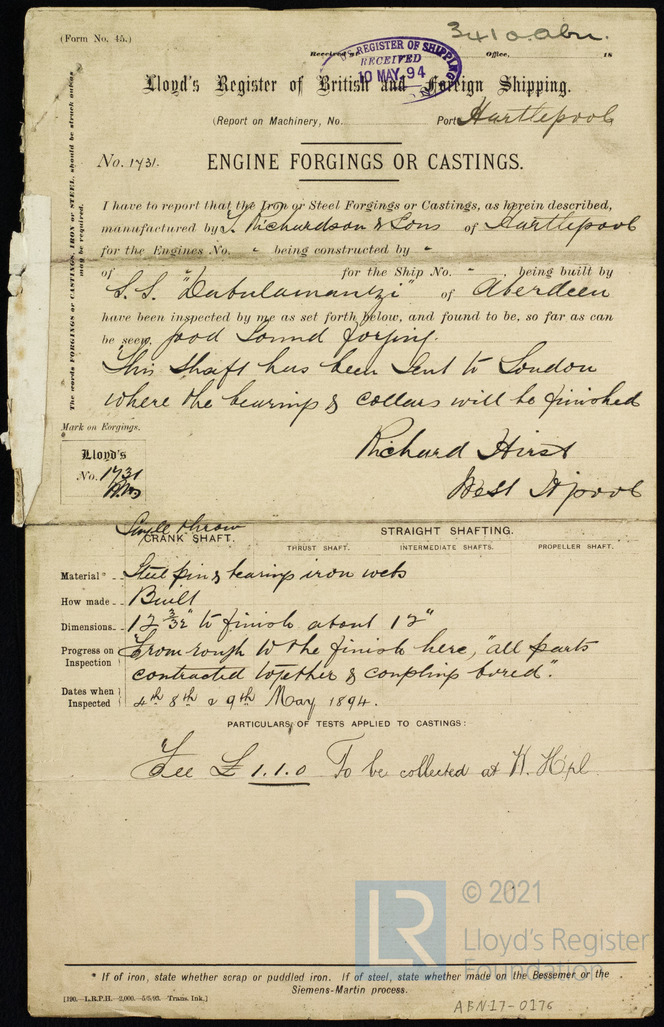 (Form No. 45.)
3410. abn.
Received at Office, 18
LLOYD'S REGISTER OF SHIPPING
RECEIVED
10 MAY. 94
Lloyd's Register of British and Foreign Shipping.
(Report on Machinery, No. Port Hartlepool
No. 1731. ENGINE FORGINGS OR CASTINGS.
The words FORGINGS or CASTINGS, IRON or STEEL, should be struck out as may be required.
I have to report that the Iron or Steel Forgings or Castings, as herein described,
manufactured by T. Richardson & Sons of Hartlepool
for the Engines No. " being constructed by "
of for the Ship No. " , being built by
S.S. "Dabulamanzi" of Aberdeen
have been inspected by me as set forth below, and found to be, so far as can
be seen, good sound forging.
This shaft has been sent to London
where the bearings & collars will be finished
Mark on Forgings.
Richard Hirst
Lloyd's
No. 1731
West H'pool
Single throw
CRANK SHAFT. STRAIGHT SHAFTING.
THRUST SHAFT. INTERMEDIATE SHAFTS. PROPELLER SHAFT.
Material* Steel pin & bearings iron webs
How made Built
Dimensions 12 3/32" to finish about 12"
Progress on Inspection From rough to the finish here, "all parts
contracted together & coupling bored".
Dates when Inspected 4th 8th & 9th May 1894.
PARTICULARS OF TESTS APPLIED TO CASTINGS:
Fee £1.1.0 To be collected at W. Hpl
© 2021
LR
Lloyd's Register
Foundation
* If of iron, state whether scrap or puddled iron. If of steel, state whether made on the Bessemer or the
Siemens-Martin process.
[190.—L.R.P.H.—2,000.—5/5/93—Trans. Ink.]
ABN17-0176